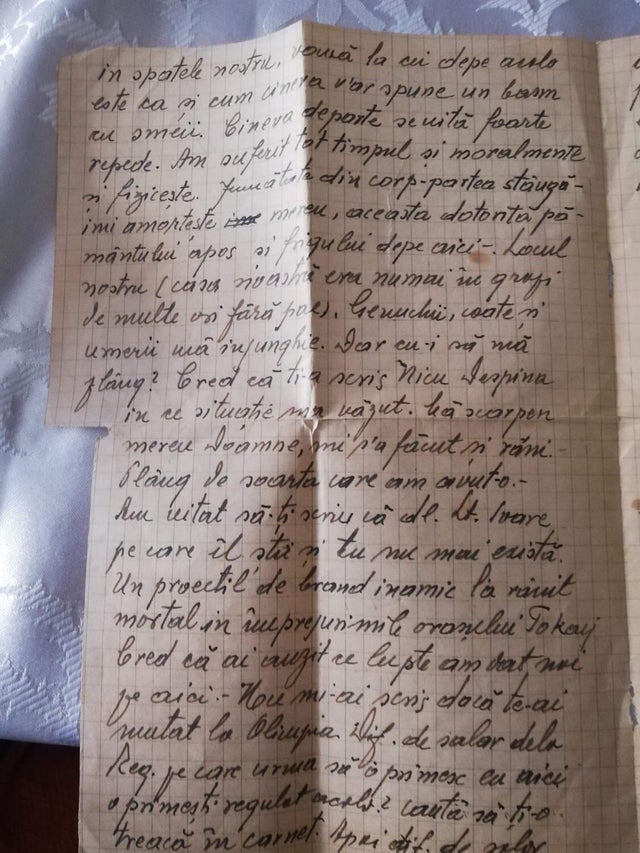 in spatele nostru, vouă la cei depe acolo
este ca și cum cineva v'ar spune un basm
cu smeii. Cineva departe se uită foarte
repede. Am suferit tot timpul si moralmente
si fizicește. Jumătate din corp-partea stângă-
imi amorțește mereu, aceasta datorită pă-
mântului apos si frigului depe aici-. Locul
nostru (casa noastră era numai în gropi
de multe ori fără pae). Genuchii, coate, si
umerii mă injunghie. Dar cu-i să mă
plâng? Cred că ti-a scris Nicu Despina
in ce situatie m'a văzut. Mă scarpen
mereu Doamne, mi s'a făcut si răni.-
Plâng de soarta care am avut-o.-
Am uitat să-ti scriu că dl. Lt. Soare,
pe care îl stii si tu nu mai există.
Un proectil de brand inamic l'a rănit
mortal in împrejurimile orașului Tokay
Cred că ai auzit ce lupte am dat noi
pe aici.- Nu mi-ai scris dacă te-ai
mutat la Olimpia. Dif. de salar dela
Reg. pe care urma să o primesc eu aici
o primești regulat acolo? caută să ți-o
treacă în carnet. Apoi dif. de salar